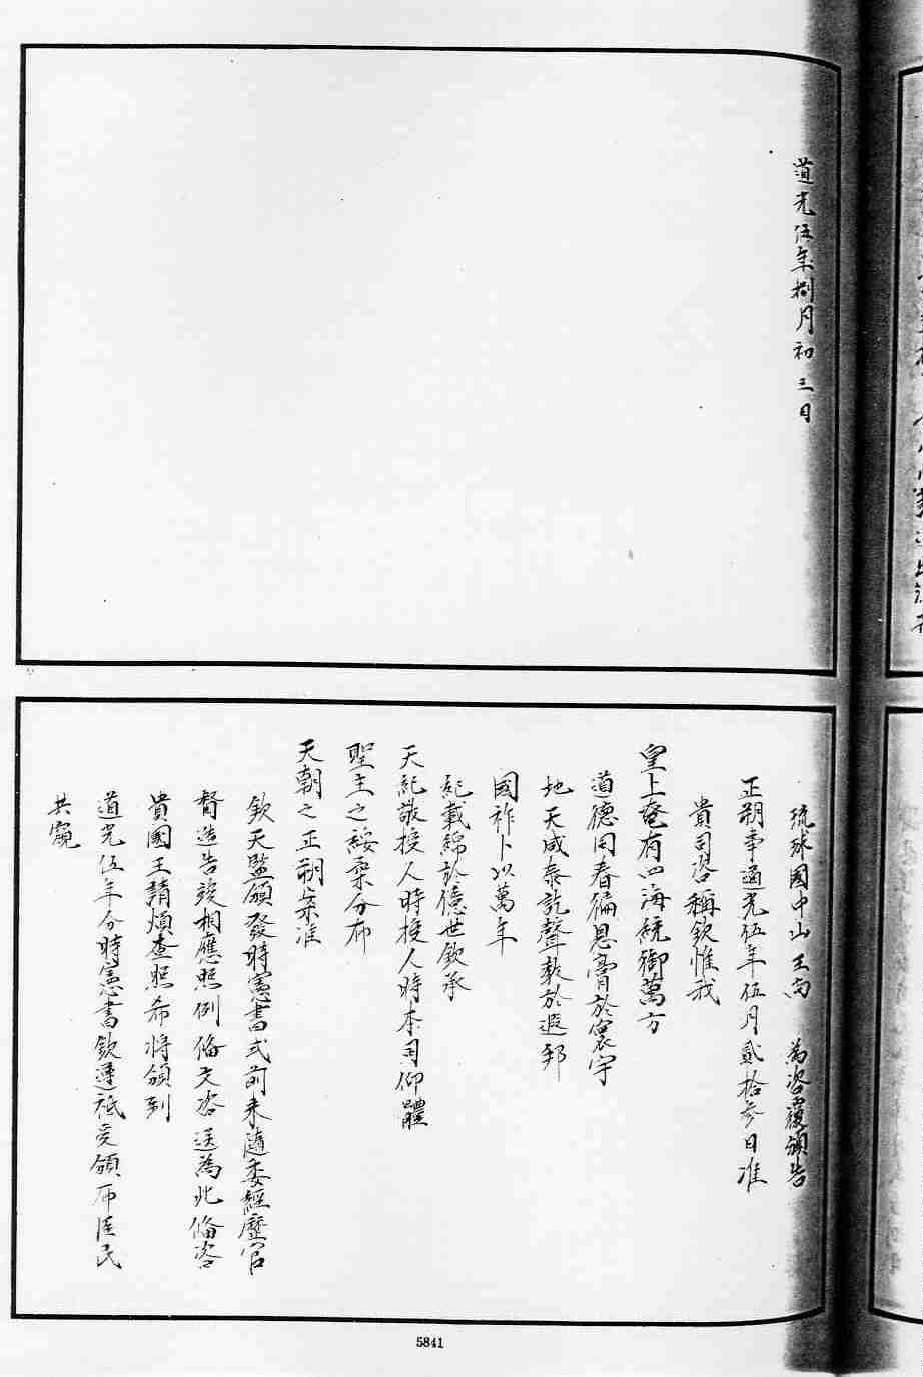 道光伍年捌月初三日
琉球國中山王尚 為咨覆頒告
正朔事道光伍年伍月貳拾參日准
貴司咨稱欽惟我
皇上奄有四海統御萬方
道德同春徧恩膏於寰宇
地天咸泰訖聲教於遐邦
國祚卜以萬年
紀載綿於億世欽承
天紀敬授人時授人時本司仰體
聖主之綏柔分布
天朝之正朔案准
欽天監頒發時憲書式前來隨委經歷官
督造告竣相應照例備文咨送為此備咨
貴國王請煩查照希將頒到
道光伍年分時憲書欽遵祗受頒布臣民
共窺
5841